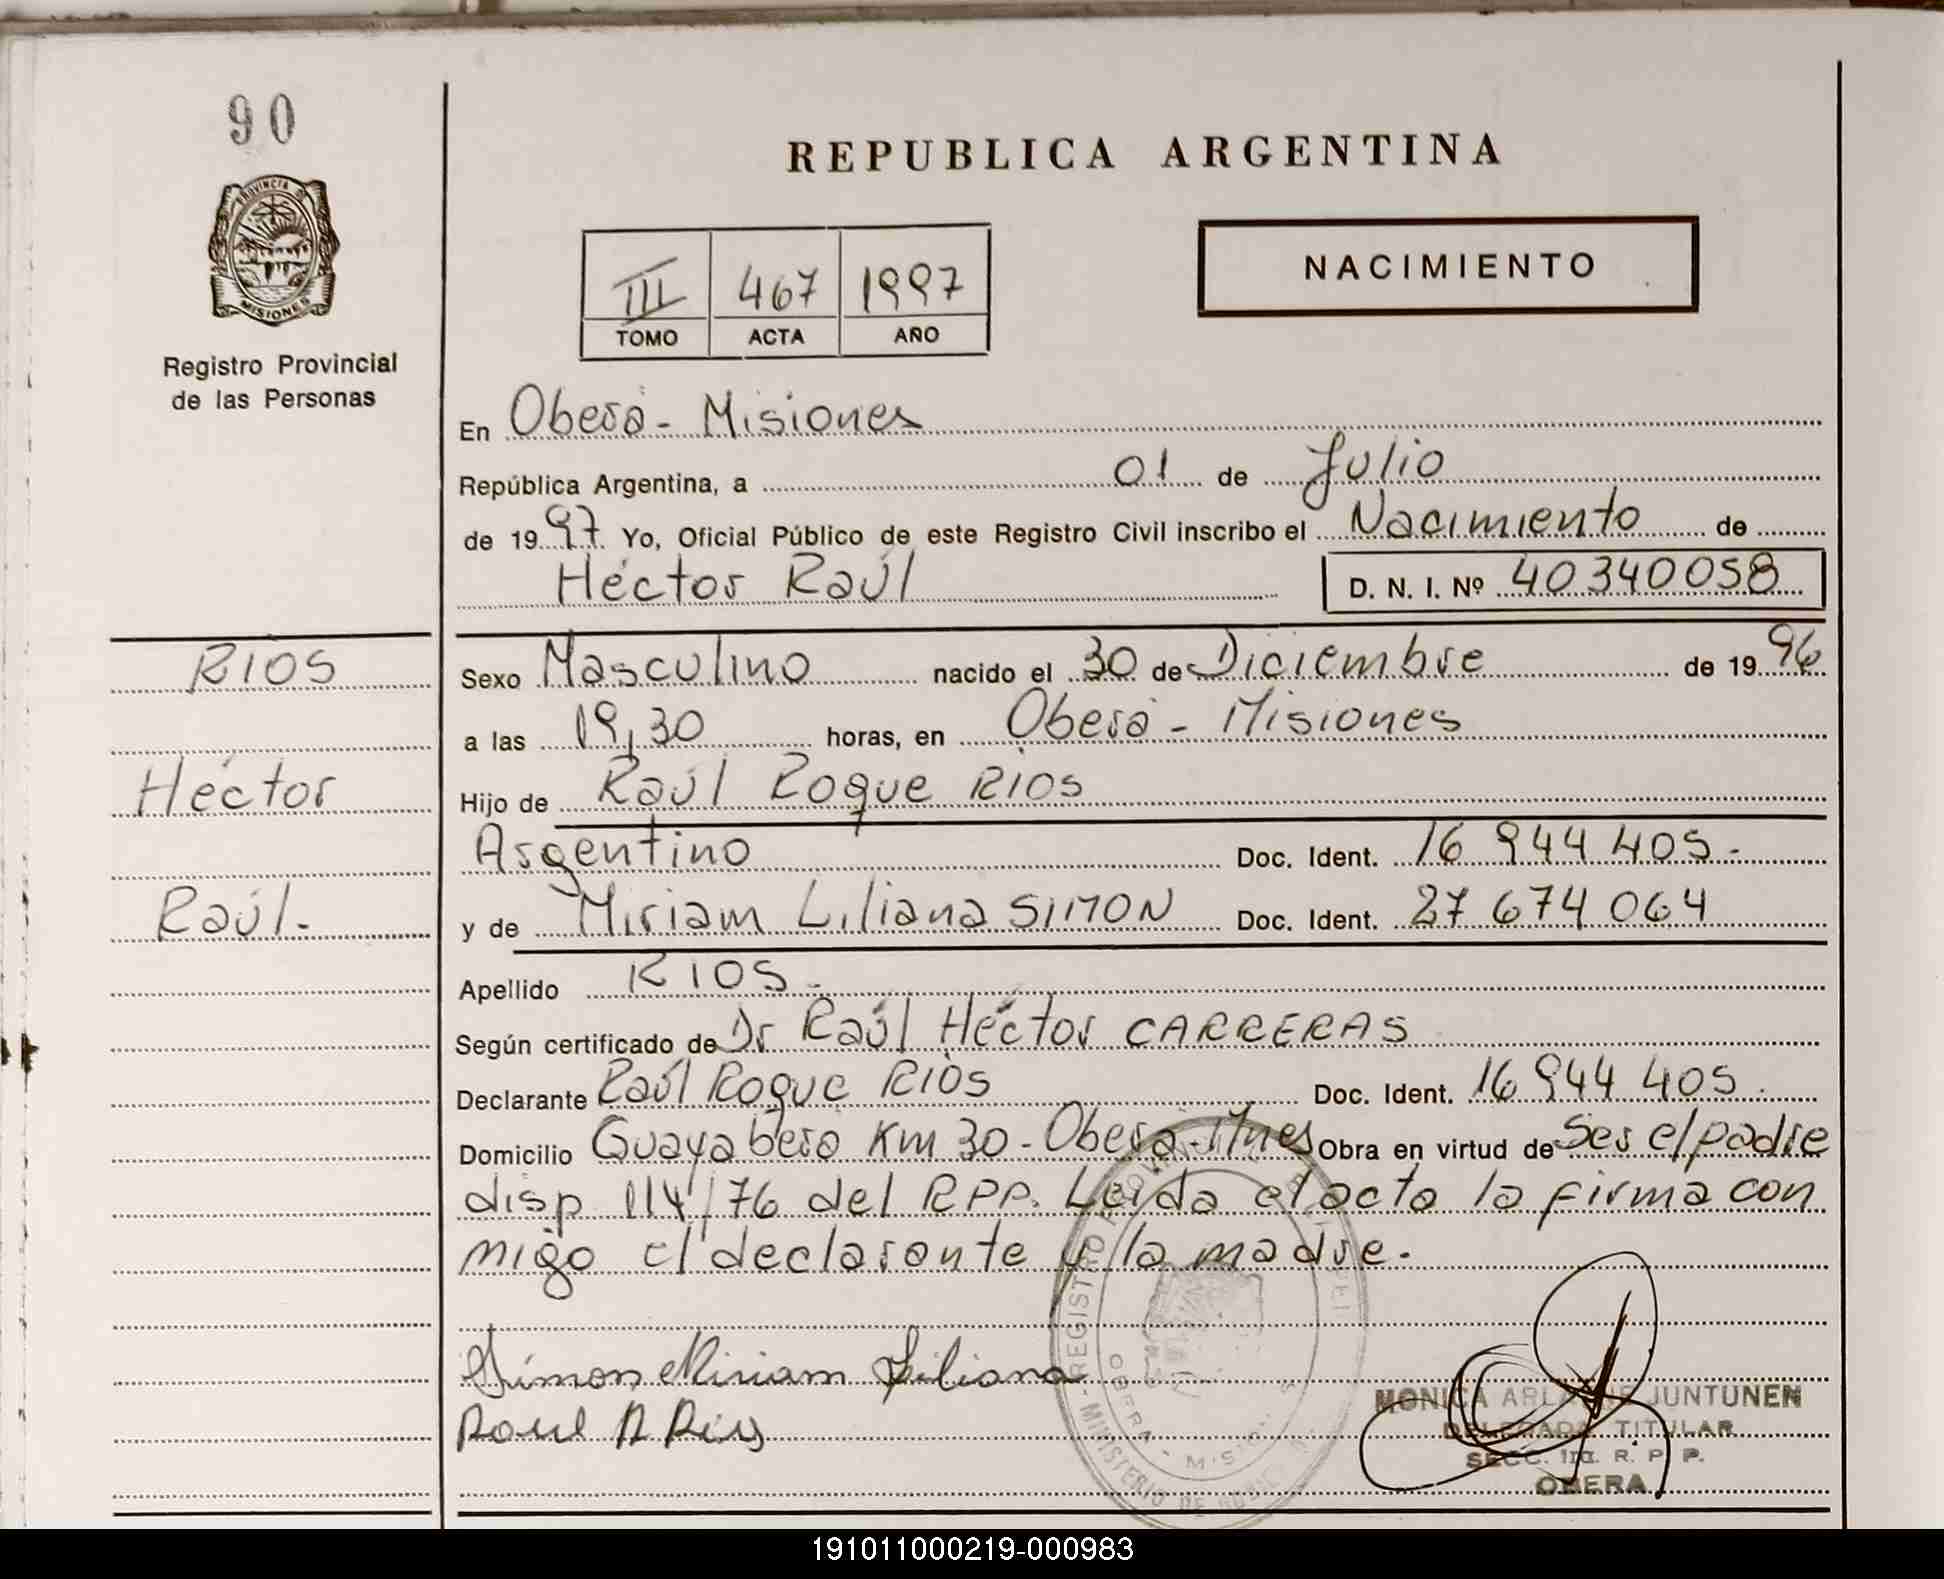 90
REPUBLICA ARGENTINA
PROVINCIA
MISIONES
III 467 1997
TOMO ACTA AÑO
NACIMIENTO
Registro Provincial
de las Personas
En Oberá - Misiones
República Argentina, a 01 de Julio
de 19 97 Yo, Oficial Público de este Registro Civil inscribo el Nacimiento de
Héctor Raúl D. N. I. Nº 40340058
RIOS
Héctor
Raúl.-
Sexo Masculino nacido el 30 de Diciembre de 19 96
a las 19,30 horas, en Oberá - Misiones
Hijo de Raúl Roque RIOS
Argentino Doc. Ident. 16 944 405.-
y de Miriam Liliana SIMON Doc. Ident. 27 674 064
Apellido RIOS.-
Según certificado de Dr Raúl Héctor CARRERAS
Declarante Raúl Roque RIOS Doc. Ident. 16 944 405.
Domicilio Guayabera Km 30 - Oberá - Mnes Obra en virtud de Ser el padre
disp 114/76 del RPP. Leída el acta la firma con
migo el declarante y la madre.
Simon Miriam Liliana
Raul R Rios
REGISTRO
OBERA - MISIO
MINISTERIO DE
MONICA JUNTUNEN
DELEGADA TITULAR
SECC. 1ra. R. P. P.
OBERA
191011000219-000983